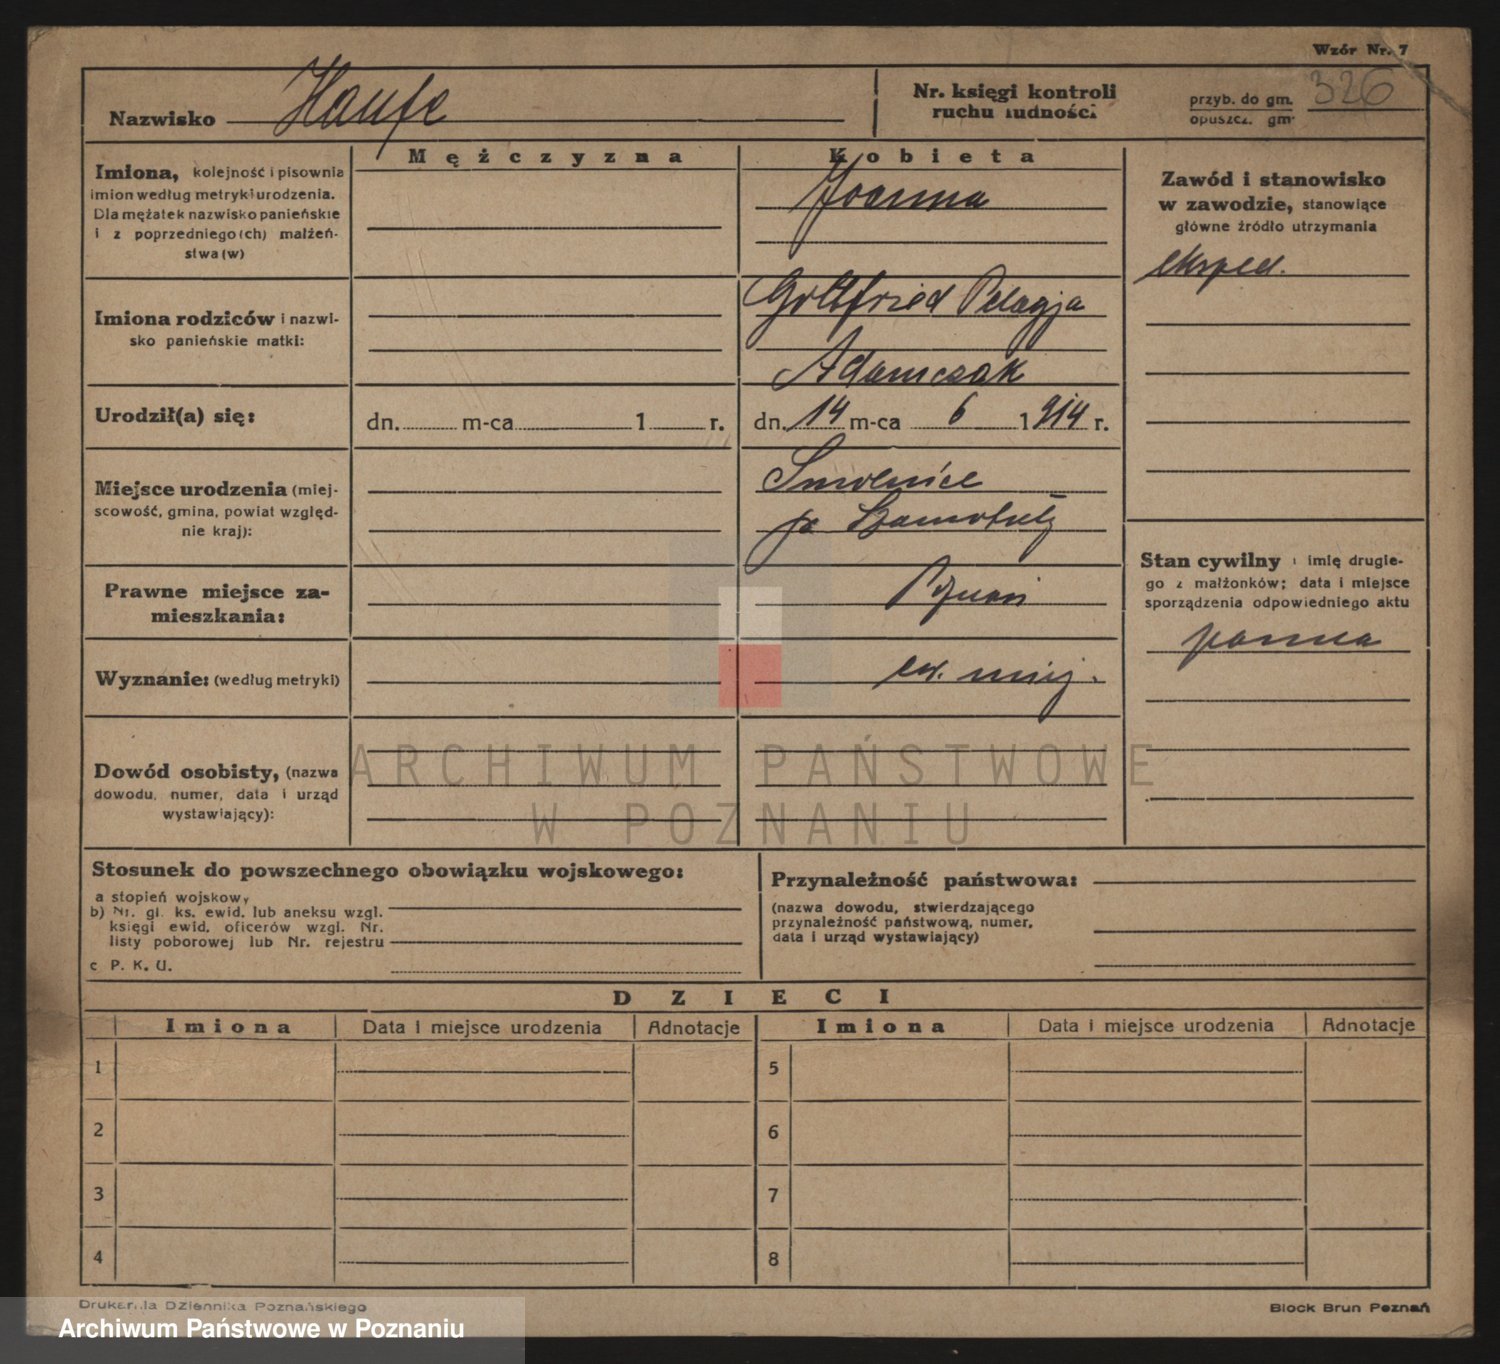 Wzór Nr. 7
Nazwisko Haufe
Nr. księgi kontroli
ruchu ludności
przyb. do gm. 326
opuszcz. gm.
Mężczyzna
Kobieta
Imiona, kolejność i pisownia
imion według metryki urodzenia.
Dla mężatek nazwisko panieńskie
i z poprzedniego(ch) małżeń-
stwa(w)
Joanna
Zawód i stanowisko
w zawodzie, stanowiące
główne źródło utrzymania
eksped.
Imiona rodziców i nazwi-
sko panieńskie matki:
Gottfried Pelagja
Adamczak
Urodził(a) się:
dn. m-ca 1 r.
dn. 14 m-ca 6 1914 r.
Miejsce urodzenia (miej-
scowość, gmina, powiat względ-
nie kraj):
Smolnice
p. Szamotuły
Stan cywilny i imię drugie-
go z małżonków; data i miejsce
sporządzenia odpowiedniego aktu
panna
Prawne miejsce za-
mieszkania:
Poznań
Wyznanie: (według metryki)
ew.
Dowód osobisty, (nazwa
dowodu, numer, data i urząd
wystawiający):
ARCHIWUM PAŃSTWOWE
W POZNANIU
Stosunek do powszechnego obowiązku wojskowego:
a stopień wojskowy
b) Nr. gl. ks. ewid. lub aneksu wzgl.
księgi ewid. oficerów wzgl. Nr.
listy poborowej lub Nr. rejestru
c P. K. U.
Przynależność państwowa:
(nazwa dowodu, stwierdzającego
przynależność państwową, numer,
data i urząd wystawiający)
DZIECI
Imiona Data i miejsce urodzenia Adnotacje Imiona Data i miejsce urodzenia Adnotacje
1 5
2 6
3 7
4 8
Drukarnia Dziennika Poznańskiego
Block Brun Poznań
Archiwum Państwowe w Poznaniu